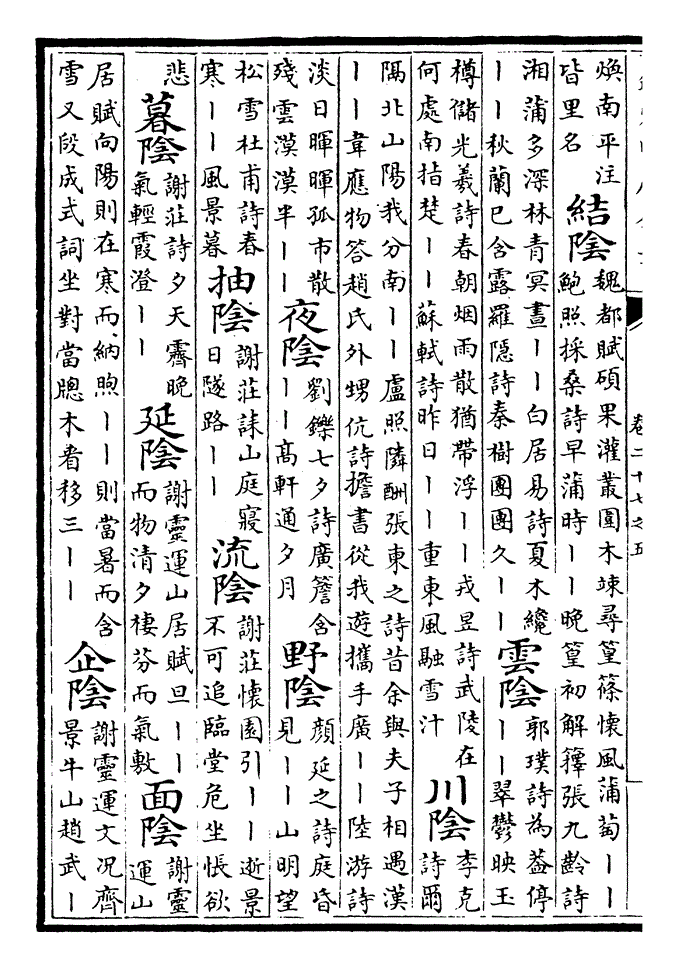 煥南平注
皆里名
結陰
魏都賦碩果灌叢圍木竦尋篁篠懷風蒲萄丨丨
鮑照採桑詩早蒲時丨丨晚篁初解籜張九齡詩
湘蒲多深林青冥晝丨丨白居易詩夏木纔
丨丨秋蘭已含露羅隱詩秦樹團團久丨丨
雲陰
郭璞詩為葢停
丨丨翠鬱映玉
樽儲光羲詩春朝烟雨散猶帶浮丨丨戎昱詩武陵在
何處南指楚丨丨蘇軾詩昨日丨丨重東風融雪汁
川陰
李克
詩爾
隅北山陽我分南丨丨盧照隣酬張東之詩昔余與夫子相遇漢
丨丨韋應物答趙氏外甥伉詩擔書從我遊攜手廣丨丨陸游詩
淡日暉暉孤市散
殘雲漠漠半丨丨
夜陰
劉鑠七夕詩廣簷含
丨丨高軒通夕月
野陰
顏延之詩庭昏
見丨丨山明望
松雪杜甫詩春
寒丨丨風景暮
抽陰
謝莊誄山庭寢
日隧路丨丨
流陰
謝莊懷園引丨丨逝景
不可追臨堂危坐悵欲
悲
暮陰
謝莊詩夕天霽晚
氣輕霞澄丨丨
延陰
謝靈運山居賦旦丨丨
而物清夕棲芬而氣敷
面陰
謝靈
運山
居賦向陽則在寒而納煦丨丨則當暑而含
雪又段成式詞坐對當䆫木看移三丨丨
企陰
謝靈運文况齊
景牛山趙武丨
卷二十七之五